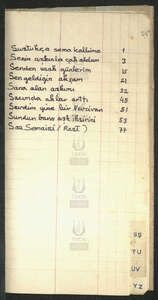 55
Sustukça sema kalbime 1
Senin aşkınla çak oldum 3
Senden uzak günlerim 15
Sen geldiğin akşam 21
Sana olan aşkımı 32
Sazında aklar arttı 45
Sevdim yine bir Nevcivan 51
Sundun bana aşk iksirini 53
Saz Semaisi (Rast) 77
SŞ
TU
UV
YZ